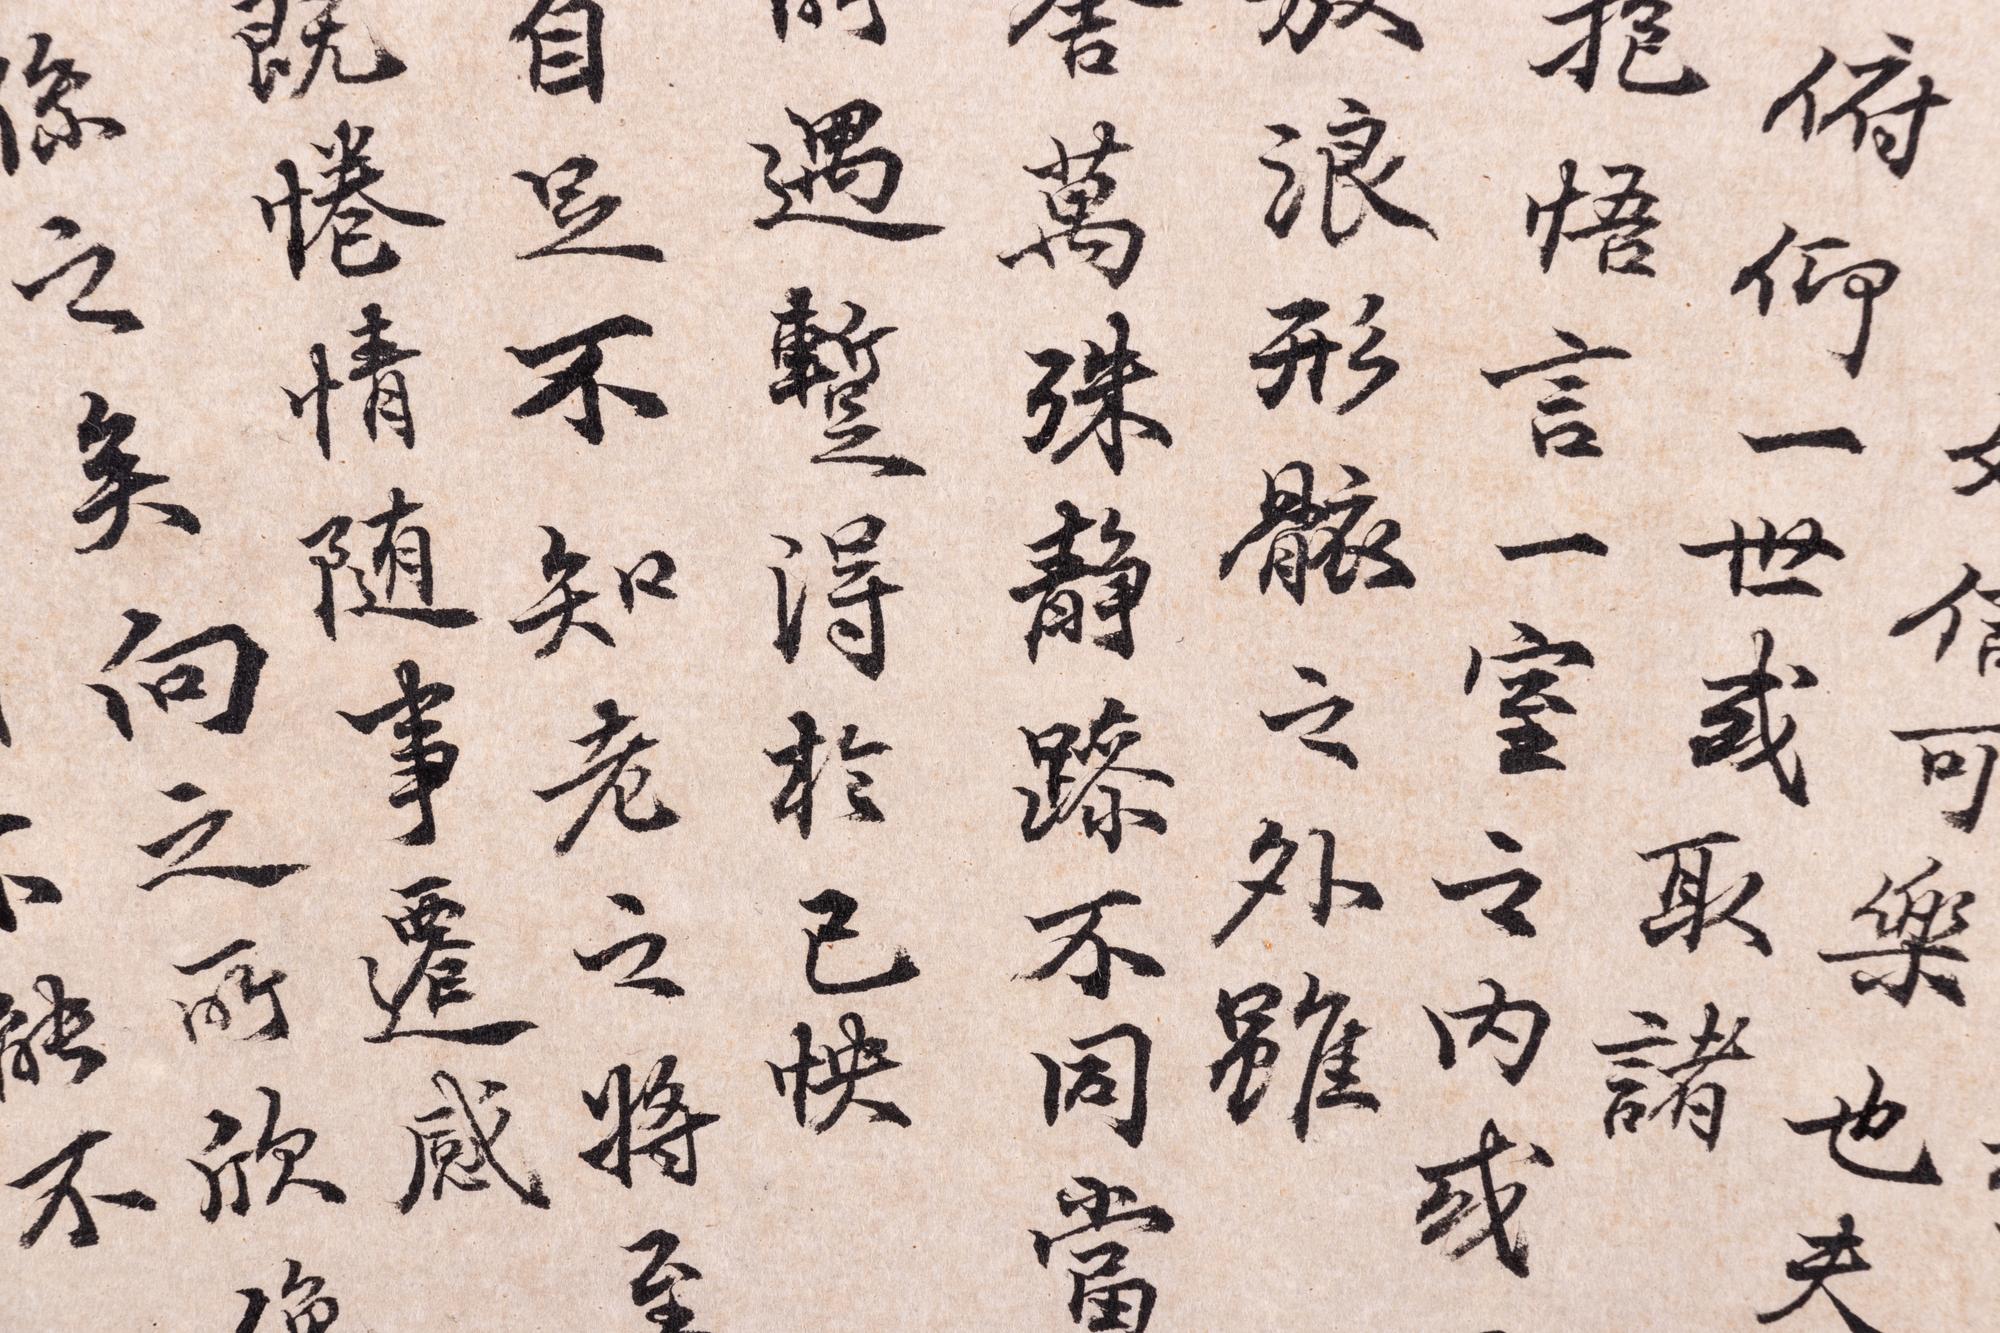 信可樂也夫
俯仰一世或取諸
抱悟言一室之內或
放浪形骸之外雖
舍萬殊靜躁不同當
所遇蹔得於己怏
自足不知老之將至
既惓情随事遷感
係之矣向之所欣俛
不能不